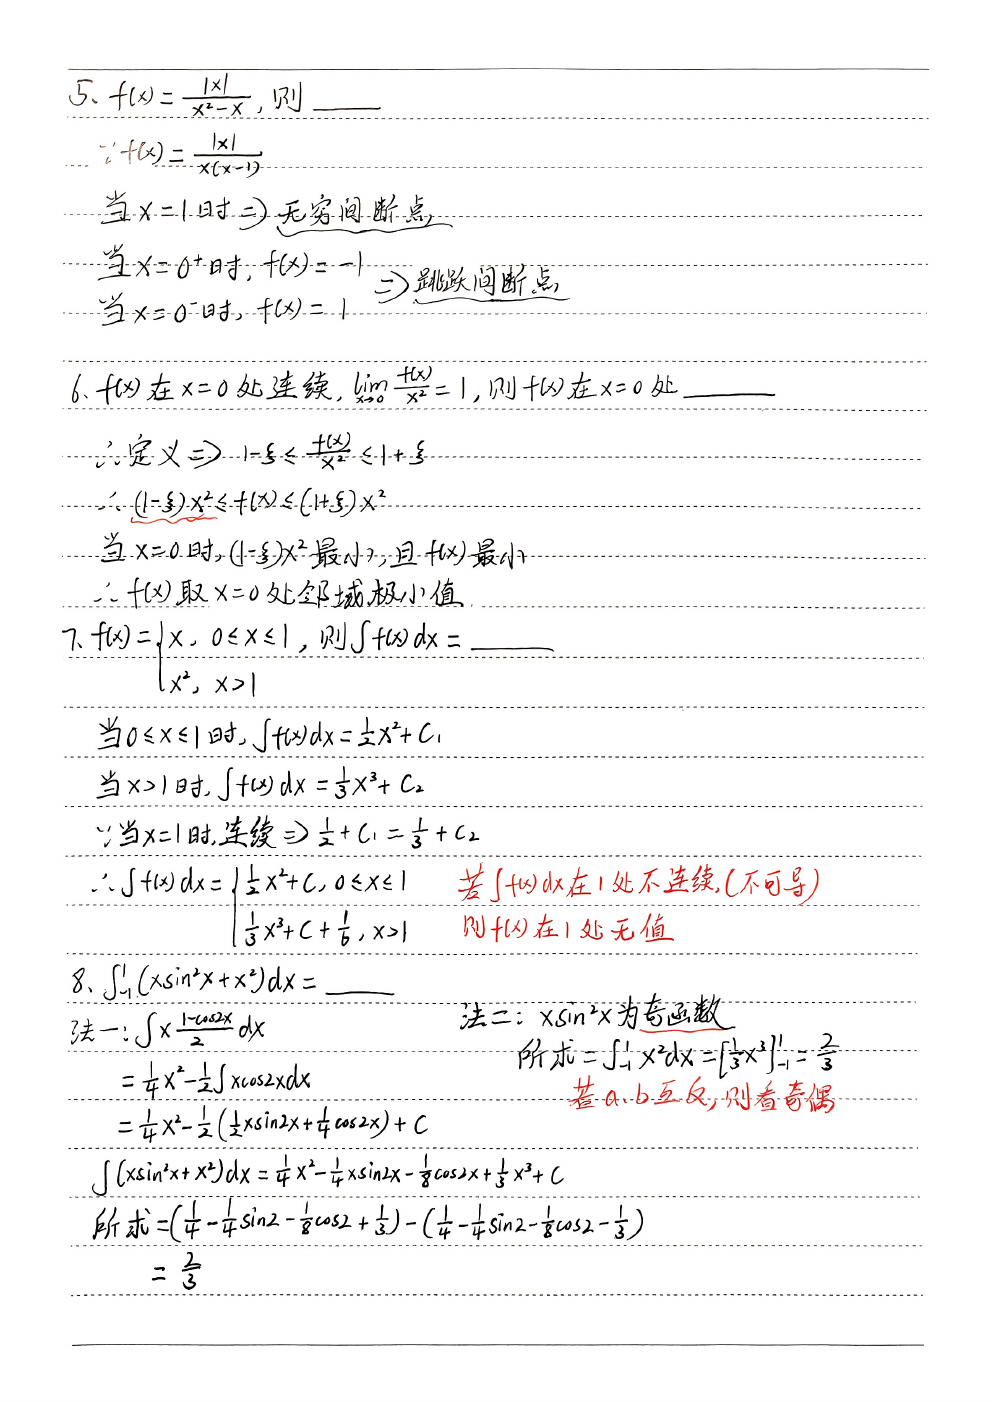 5、f(x) = |x|/(x²-x), 则 ____
∵ f(x) = |x|/(x(x-1))
当 x=1时 => 无穷间断点
当 x=0⁺时, f(x) = -1
=> 跳跃间断点
当 x=0⁻时, f(x) = 1
6、f(x) 在 x=0 处连续, lim x→0 f(x)/x² = 1, 则 f(x) 在 x=0 处 ____
∴ 定义 => 1-ξ ≤ f(x)/x² ≤ 1+ξ
∴ (1-ξ)x² ≤ f(x) ≤ (1+ξ)x²
当 x=0时, (1-ξ)x² 最小, 且 f(x) 最小
∴ f(x) 取 x=0 处邻域极小值
7、f(x) = { x, 0≤x≤1, 则 ∫f(x)dx = ____
x², x>1
当 0≤x≤1时, ∫f(x)dx = ½x²+C₁
当 x>1时, ∫f(x)dx = ⅓x³+C₂
∵ 当x=1时, 连续 => ½+C₁ = ⅓+C₂
∴ ∫f(x)dx = { ½x²+C, 0≤x≤1
⅓x³+C+⅙, x>1
若∫f(x)dx在1处不连续,(不可导)
则f(x)在1处无值
8、∫₋₁¹(xsin²x+x²)dx = ____
法一: ∫x (1-cos2x)/2 dx
= ¼x² - ½∫xcos2xdx
= ¼x² - ½(½xsin2x+¼cos2x)+C
法二: xsin²x为奇函数
所求 = ∫₋₁¹ x²dx = [⅓x³]₋₁¹ = ⅔
若a、b互反, 则看奇偶
∫(xsin²x+x²)dx = ¼x² - ¼xsin2x - ⅛cos2x + ⅓x³ + C
所求 = (¼ - ¼sin2 - ⅛cos2 + ⅓) - (¼ - ¼sin2 - ⅛cos2 - ⅓)
= ⅔